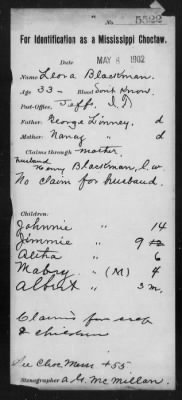 5522
For Identification as a Mississippi Choctaw.
Date MAY 8 1902
Name Leora Blackman.
Age 33 - Blood Dont Know.
Post-Office, Jeff, I.T.
Father: George Linney. d
Mother: Nancy " d
Claims through Mother.
husband
Henry Blackman, I.W.
No claim for husband.
Children:
Johnnie " 14
Jimmie " 9
Aletha " 6
Mabry " (M) 4
Albert " 3 m.
Claims for self
& children
See Choc Mem # 55
Stenographer A.G. McMillan.